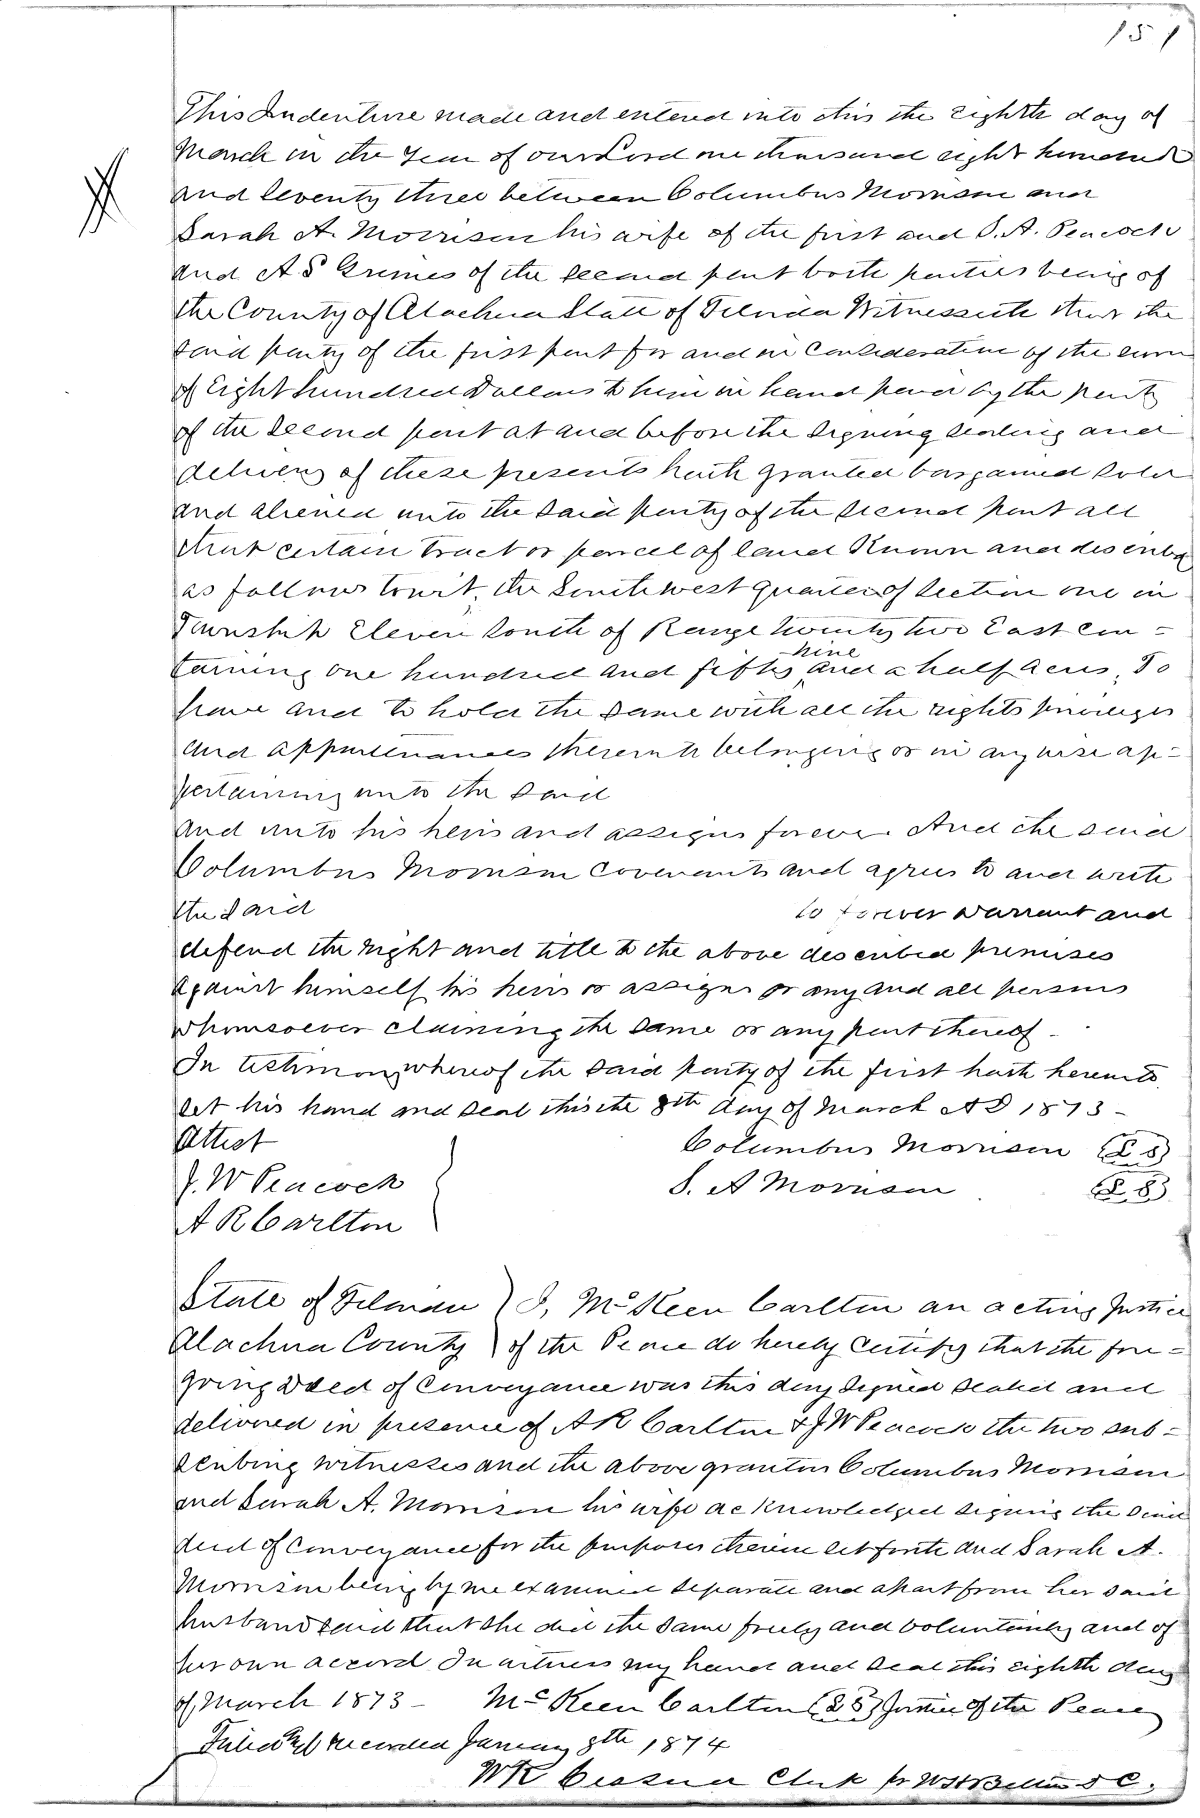 151
This Indenture made and entered into this the Eighth day of
March in the Year of our Lord one thousand eight hundred
and Seventy three between Columbus Morrison and
Sarah A. Morrison his wife of the first and S. A. Peacock
and A S Grimes of the second part both parties being of
the County of Alachua State of Florida Witnesseth that the
said party of the first part for and in Consideration of the sum
of Eight hundred Dollars to him in hand paid by the party
of the Second part at and before the signing sealing and
delivery of these presents hath granted bargained sold
and aliened unto the said party of the second part all
that certain tract or parcel of land Known and described
as follows towit, the South west quarter of Section one in
Township Eleven South of Range twenty two East con=
taining one hundred and fifty nine and a half acres, To
have and to hold the same with all the rights privileges
and appurtenances thereunto belonging or in any wise ap=
pertaining unto the said
and unto his heirs and assigns forever And the said
Columbus Morrison Covenants and agrees to and with
the said to forever warrant and
defend the right and title to the above described premises
against himself his heirs or assigns or any and all persons
whomsoever claiming the same or any part thereof -
In testimony whereof the said party of the first hath hereunto
set his hand and seal this the 8th day of March AD 1873 -
Attest Columbus Morrison (L S)
J. W Peacock S. A Morrison (L S)
A R Carlton
State of Florida ) I, McKeen Carlton an acting Justice
Alachua County ) of the Peace do hereby Certify that the fore=
going Deed of Conveyance was this day signed sealed and
delivered in presence of A R Carlton & J W Peacock the two sub=
scribing witnesses and the above grantors Columbus Morrison
and Sarah A. Morrison his wife acknowledged signing the said
deed of Conveyance for the purposes therein set forth and Sarah A.
Morrison being by me examined separate and apart from her said
husband said that she did the same freely and voluntarily and of
her own accord In witness my hand and seal this eighth day
of March 1873 - McKeen Carlton (L S) Justice of the Peace
Filed and recorded January 8th 1874
W K Cessna Clerk pr W H Belton D C.